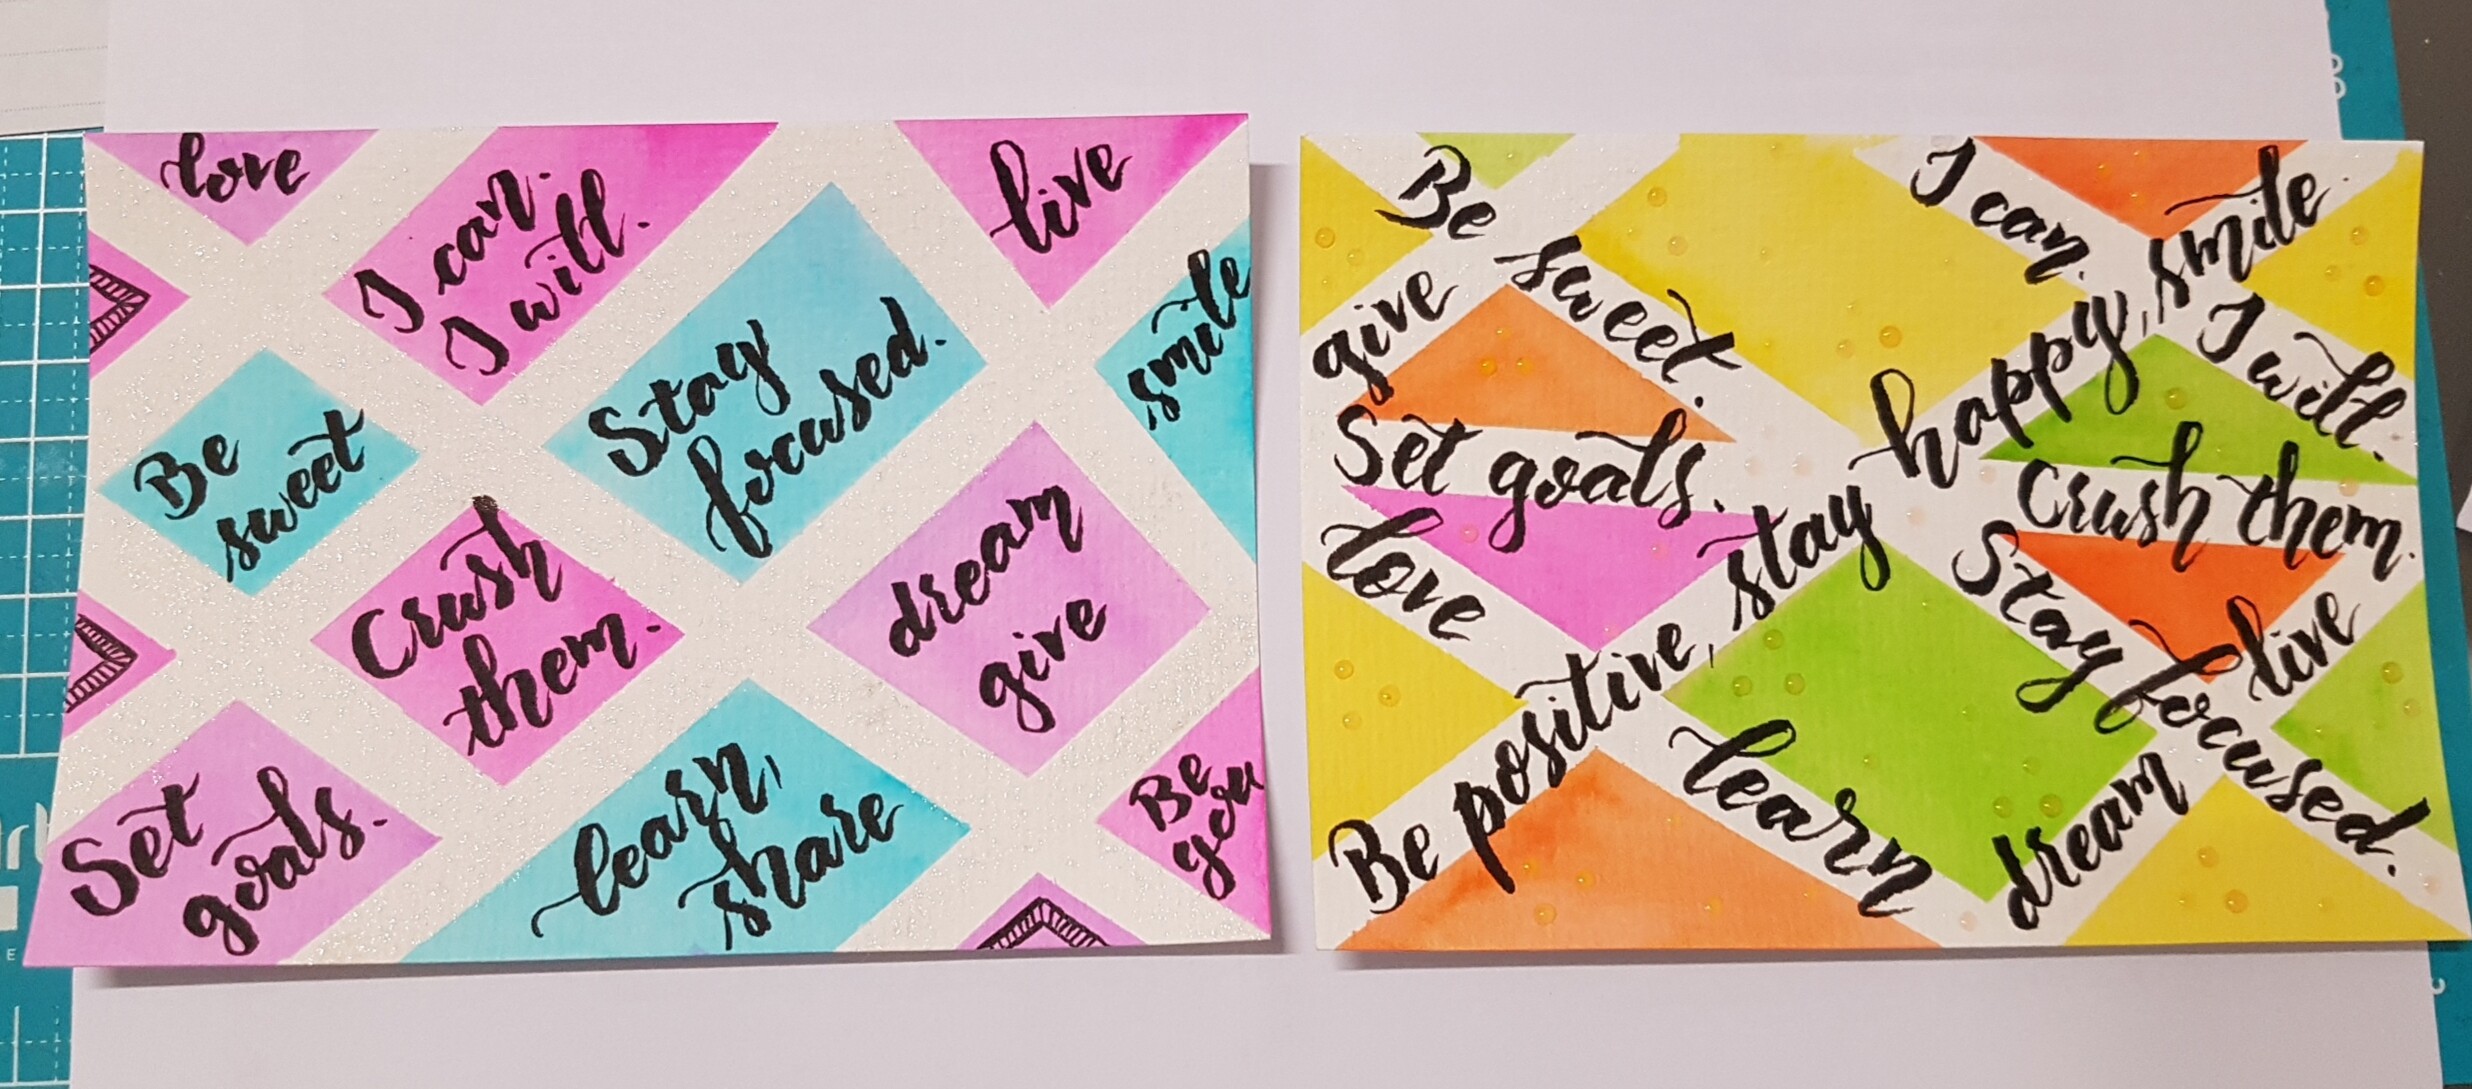 love
I can.
I will.
live
smile
Be
sweet
Stay
focused.
Crush
them.
dream
give
Set
goals.
learn,
share
Be
you
Be sweet.
I can.
I will.
give
Set goals.
Crush them.
love
Be positive, stay happy, smile.
Stay focused.
learn
dream
live